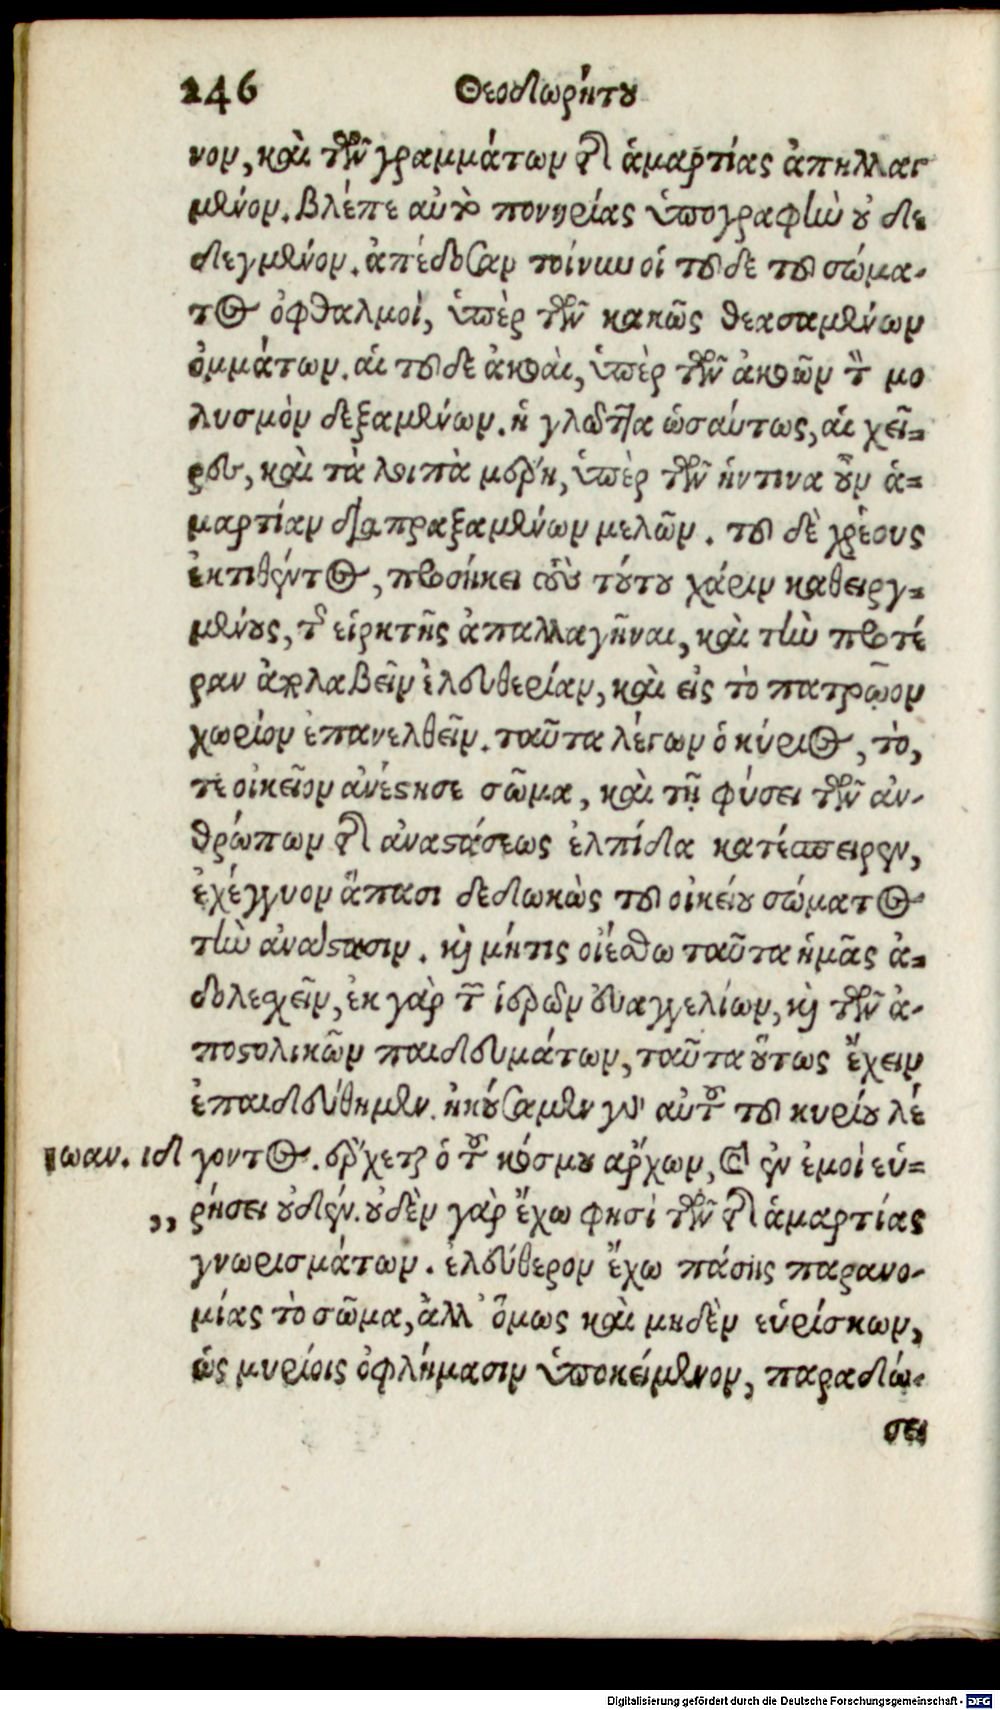 246 Θεοδωρήτου
νον, καὶ τῶν γραμμάτων τῆς ἁμαρτίας ἀπηλλαγ
μένον. βλέπε αὐτὸ πονηρίας ὑπογραφὴν οὐ δε
δεγμένον. ἀπέδοσαν τοίνυν οἱ τοῦδε τοῦ σώμα-
τος ὀφθαλμοὶ, ὑπὲρ τῶν κακῶς θεασαμένων
ὀμμάτων. αἱ τοῦδε ἀκοαὶ, ὑπὲρ τῶν ἀκοῶν τὸν μο
λυσμὸν δεξαμένων. ἡ γλῶττα ὡσαύτως, αἱ χεῖ-
ρες, καὶ τὰ λοιπὰ μέρη, ὑπὲρ τῶν ἡντινα οὖν ἁ-
μαρτίαν διαπραξαμένων μελῶν. τοῦ δὲ χρέους
ἐκτιθέντος, προσήκει τοὺς τούτου χάριν καθειργ-
μένους, τῆς εἱρκτῆς ἀπαλλαγῆναι, καὶ τὴν προτέ
ραν ἀπολαβεῖν ἐλευθερίαν, καὶ εἰς τὸ πατρῷον
χωρίον ἐπανελθεῖν. ταῦτα λέγων ὁ κύριος, τὸ,
τε οἰκεῖον ἀνέστησε σῶμα, καὶ τῇ φύσει τῶν ἀν-
θρώπων τῆς ἀναστάσεως ἐλπίδα κατέσπειρεν,
ἐχέγγυον ἅπασι δεδωκὼς τοῦ οἰκείου σώματος
τὴν ἀνάστασιν. καὶ μήτις οἰέσθω ταῦτα ἡμᾶς ἀ-
δολεσχεῖν, ἐκ γὰρ τῶν ἱερῶν εὐαγγελίων, καὶ τῶν ἀ-
ποστολικῶν παιδευμάτων, ταῦτα οὕτως ἔχειν
ἐπαιδεύθημεν. ἠκούσαμεν γὰρ αὐτοῦ τοῦ κυρίου λέ
Ιωαν. ιδ γοντος. ἔρχεται ὁ τοῦ κόσμου ἄρχων, καὶ ἐν ἐμοὶ εὑ-
,, ρήσει οὐδέν. οὐδὲν γὰρ ἔχω φησὶ τῶν τῆς ἁμαρτίας
γνωρισμάτων. ἐλεύθερον ἔχω πάσης παρανο-
μίας τὸ σῶμα, ἀλλ' ὅμως καὶ μηδὲν εὑρίσκων,
ὡς μυρίοις ὀφλήμασιν ὑποκείμενον, παραδώ-
σει
Digitalisierung gefördert durch die Deutsche Forschungsgemeinschaft - DFG